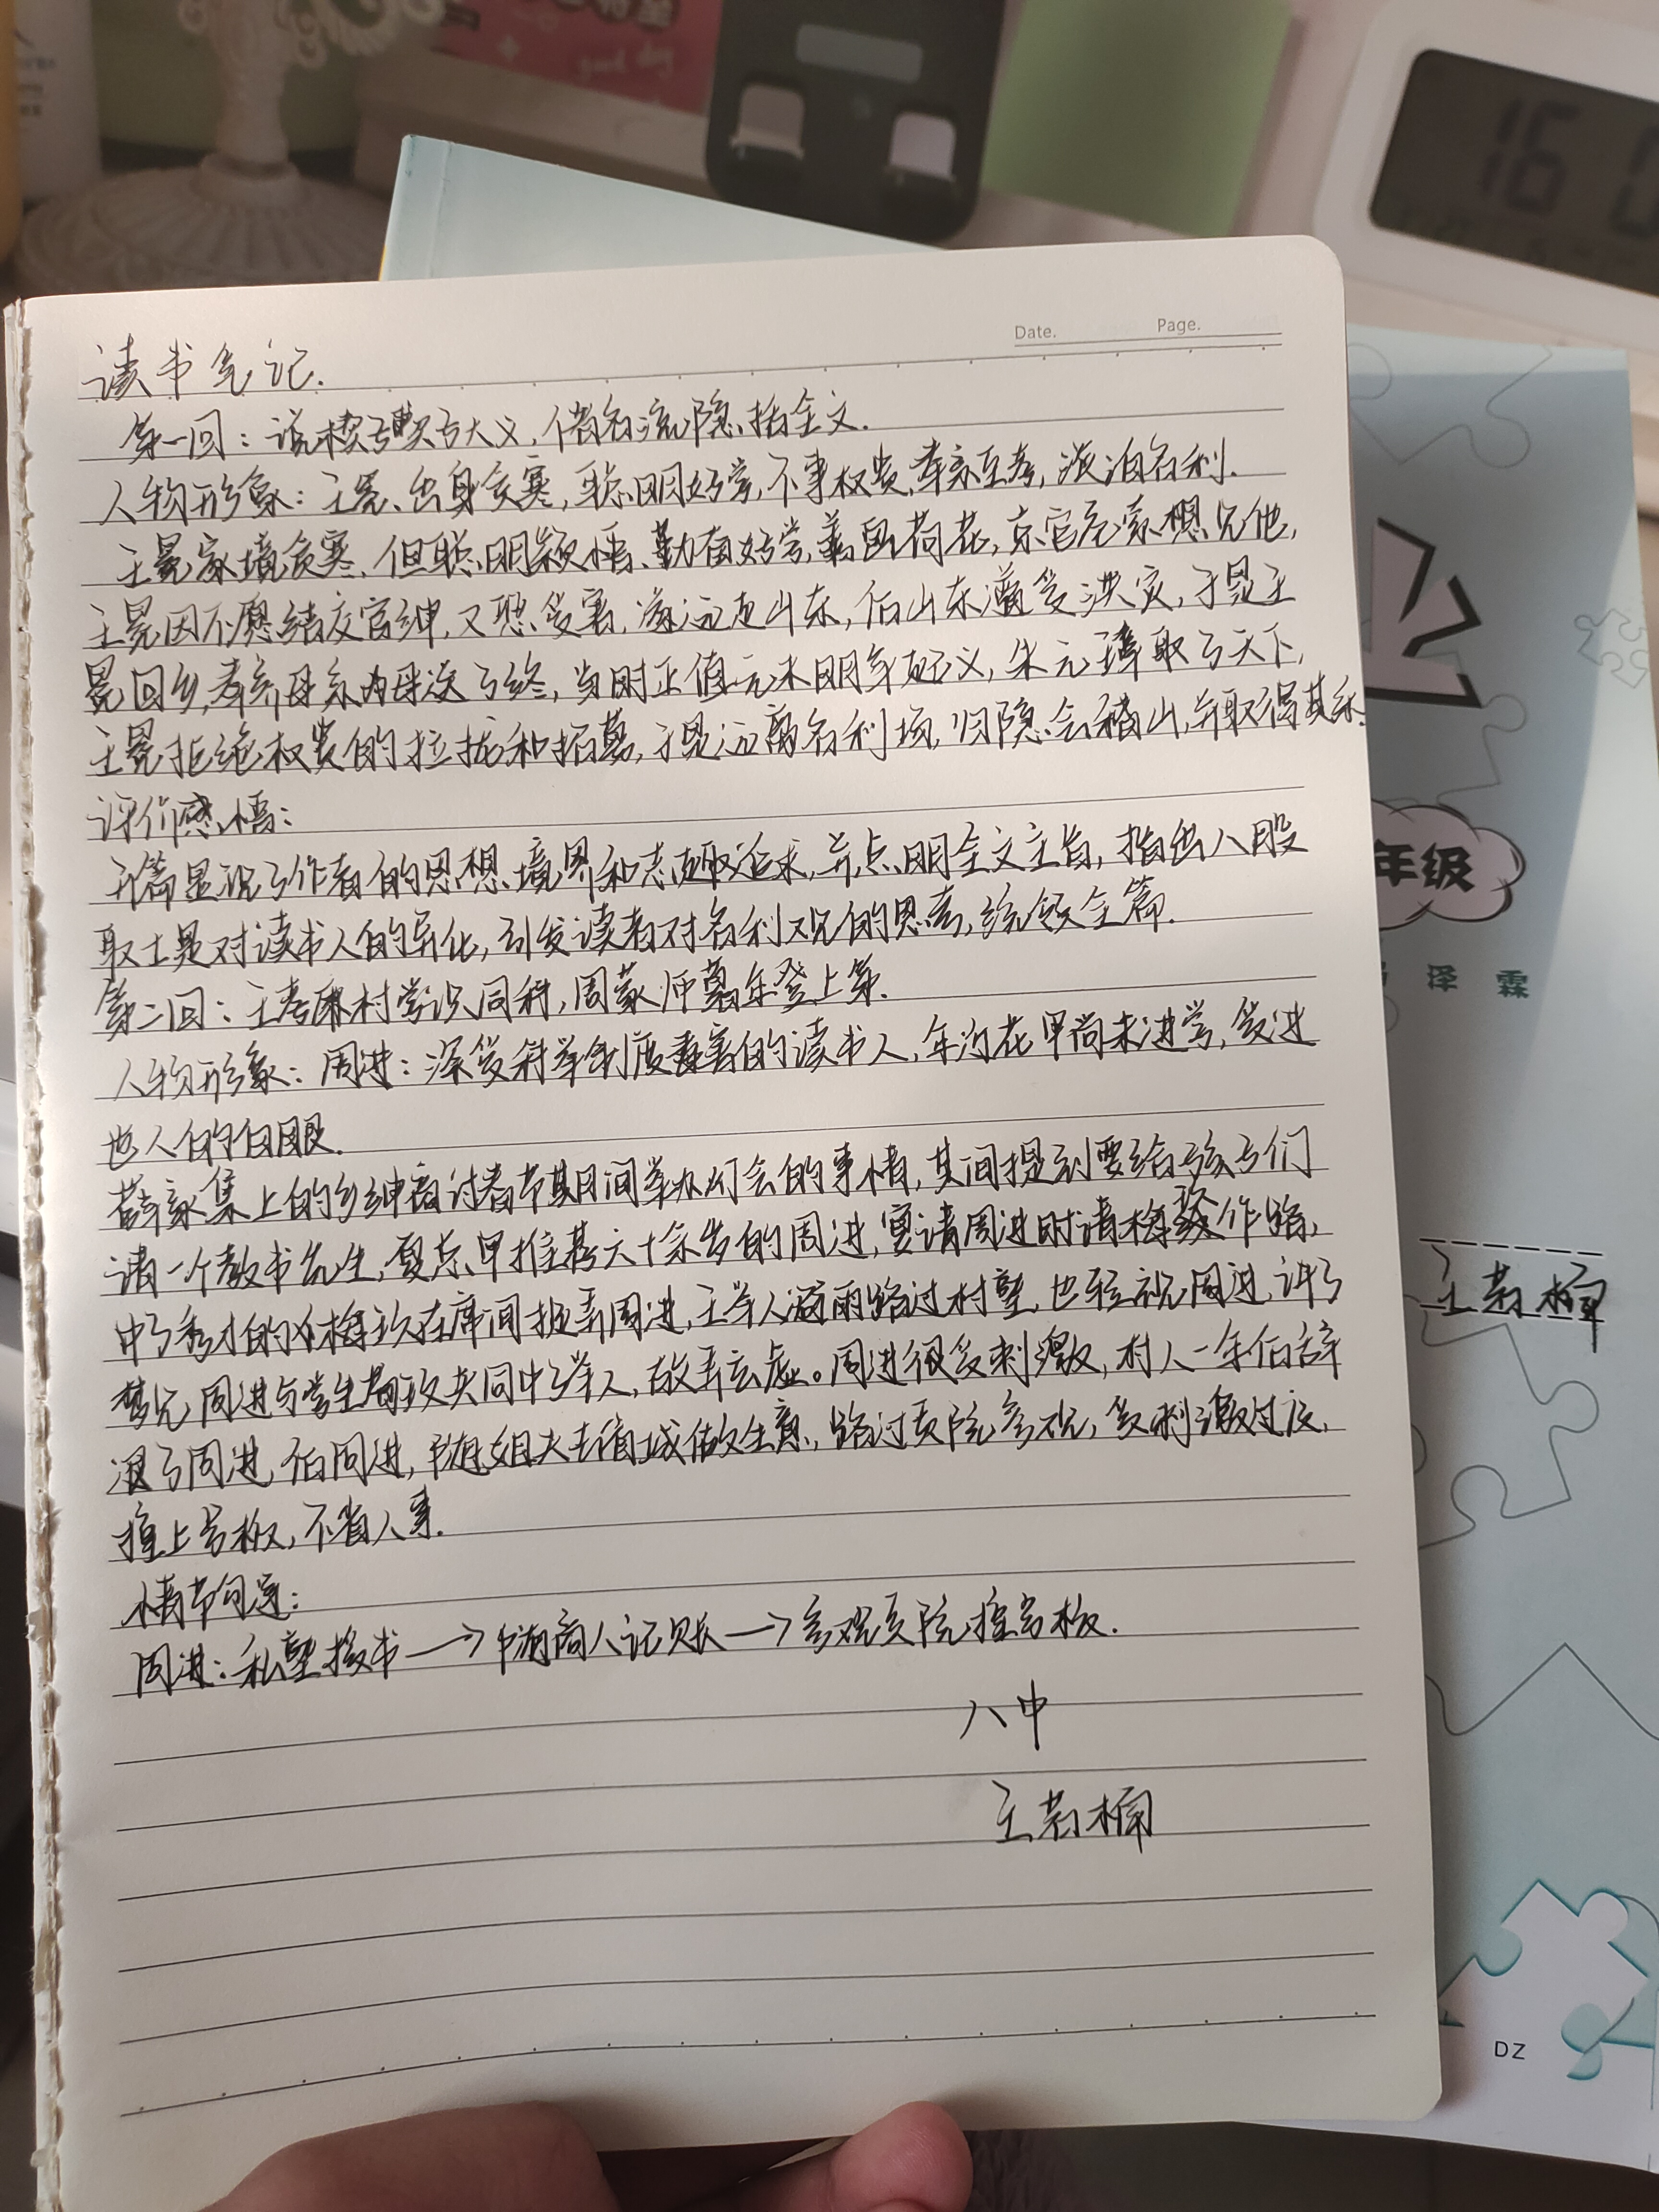 good day
16
Date. Page.
读书笔记.
第一回：说楔子敷陈大义，借名流隐括全文.
人物形象：王冕、出身贫寒，聪明好学，不事权贵，孝亲至孝，淡泊名利.
王冕家境贫寒、但聪明颖悟、勤奋好学，善画荷花，京官危素想见他，
王冕因不愿结交官绅，又恐受害，远走山东，但山东遭受洪灾，于是王
冕回乡，孝养母亲为母送了终，当时正值元末明年起义，朱元璋取了天下，
王冕拒绝权贵的拉拢和招募，于是远离名利场，归隐会稽山，并取得其乐.
评价感悟：
开篇显现了作者的思想境界和志趣追求，并点明全文主旨，指出八股
取士是对读书人的异化，引发读者对名利观的思考，统领全篇.
第二回：王孝廉村学识同科，周蒙师暮年登上第.
人物形象：周进：深受科举制度毒害的读书人，年近花甲尚未进学，受过
他人的白眼.
薛家集上的乡绅商讨春节期间举办灯会的事情，其间提到要给孩子们
请一个教书先生，夏总甲推荐六十余岁的周进，宴请周进时请梅玖作陪，
中了秀才的梅玖在席间捉弄周进，王举人避雨路过村塾，也轻视周进，讲了
梦见周进与学生荀玫共同中了举人，故弄玄虚。周进很受刺激，村人一年后辞
退了周进，后周进，随姐夫去省城做生意，路过贡院参观，受刺激过度，
撞上号板，不省人事.
情节勾连：
周进：私塾教书→帮商人记账→参观贡院撞号板.
八中
王若楠
年级
泽 霖
王若楠
DZ